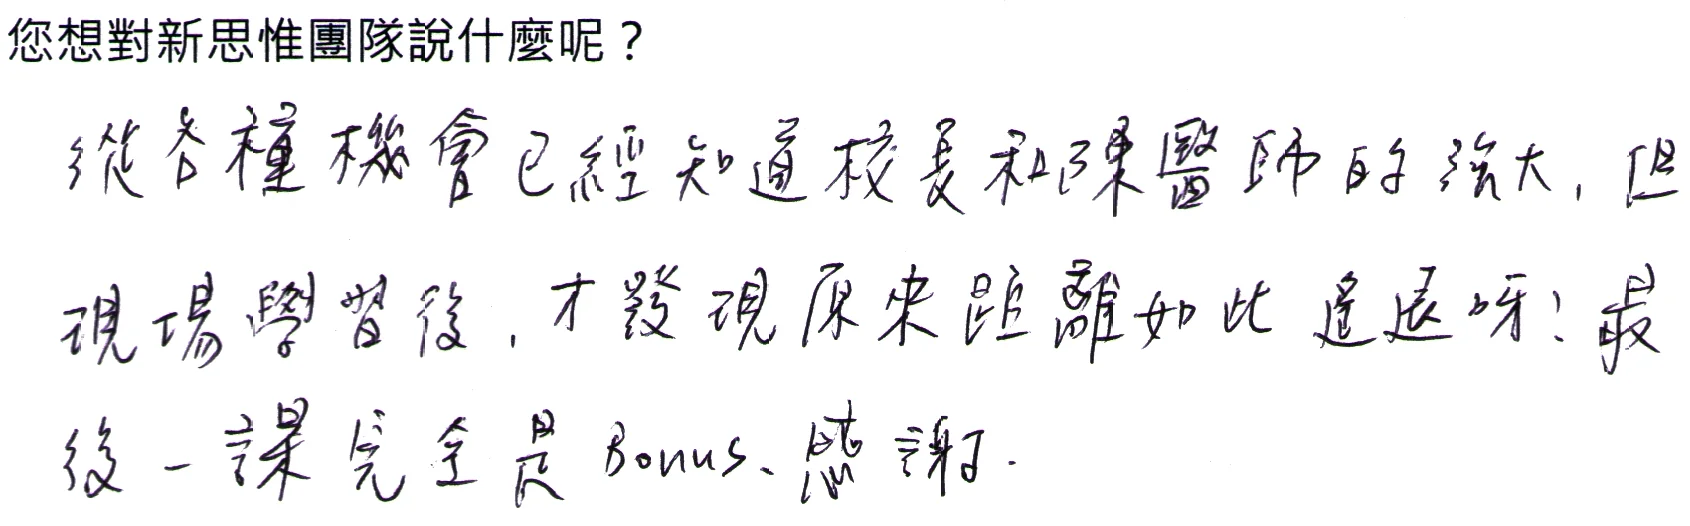 您想對新思惟團隊說什麼呢？
從各種機會已經知道校長和陳醫師的強大，但
現場學習後，才發現原來距離如此遙遠呀！最
後一課完全是Bonus、感謝．